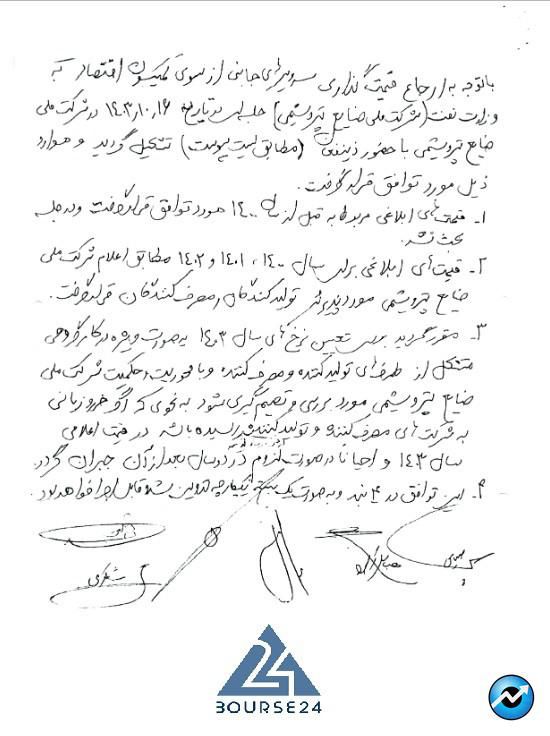 باتوجه به ارجاع قیمت گذاری سرویس‌های جانبی از سوی کمیسیون اقتصاد به
وزارت نفت (شرکت ملی صنایع پتروشیمی) جلسه‌ای در تاریخ ۱۴۰۳،۱۰،۱۶ در شرکت ملی
صنایع پتروشیمی با حضور ذینفعان (مطابق لیست پیوست) تشکیل گردید و موارد
ذیل مورد توافق قرار گرفت.
۱- قیمت‌های ابلاغی مربوط به قبل از سال ۱۴۰۰ مورد توافق قرار گرفت و در جلسه
بحث نشد.
۲- قیمت‌های ابلاغی برای سال ۱۴۰۰، ۱۴۰۱ و ۱۴۰۲ مطابق اعلام شرکت ملی
صنایع پتروشیمی مورد پذیرش تولیدکنندگان و مصرف کنندگان قرار گرفت.
۳- مقرر گردید بررسی تعیین نرخ‌های سال ۱۴۰۳ به صورت ویژه در کارگروهی
متشکل از طرف‌های تولیدکننده و مصرف کننده و با محوریت و حکمیت شرکت ملی
صنایع پتروشیمی مورد بررسی و تصمیم گیری شود به نحوی که اگر ضرر و زیانی
به شرکت‌های مصرف کننده و تولیدکننده رسیده باشد در قیمت اعلامی
سال ۱۴۰۳ و احیانا در صورت لزوم در دو سال بعد از آن جبران گردد.
۴- این توافق در ۴ بند و به صورت یک بسته یکپارچه تدوین شده قابل اجرا خواهد بود.
BOURSE24